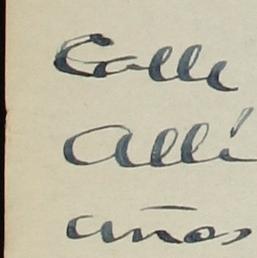 Calle
Allí
años